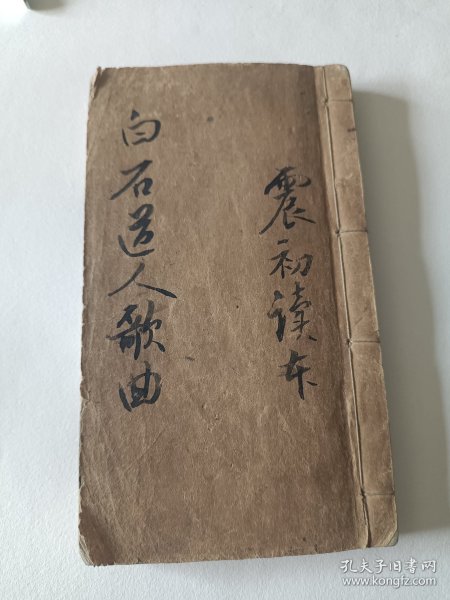 白石道人歌曲
震初读本
孔夫子旧书网
www.kongfz.com